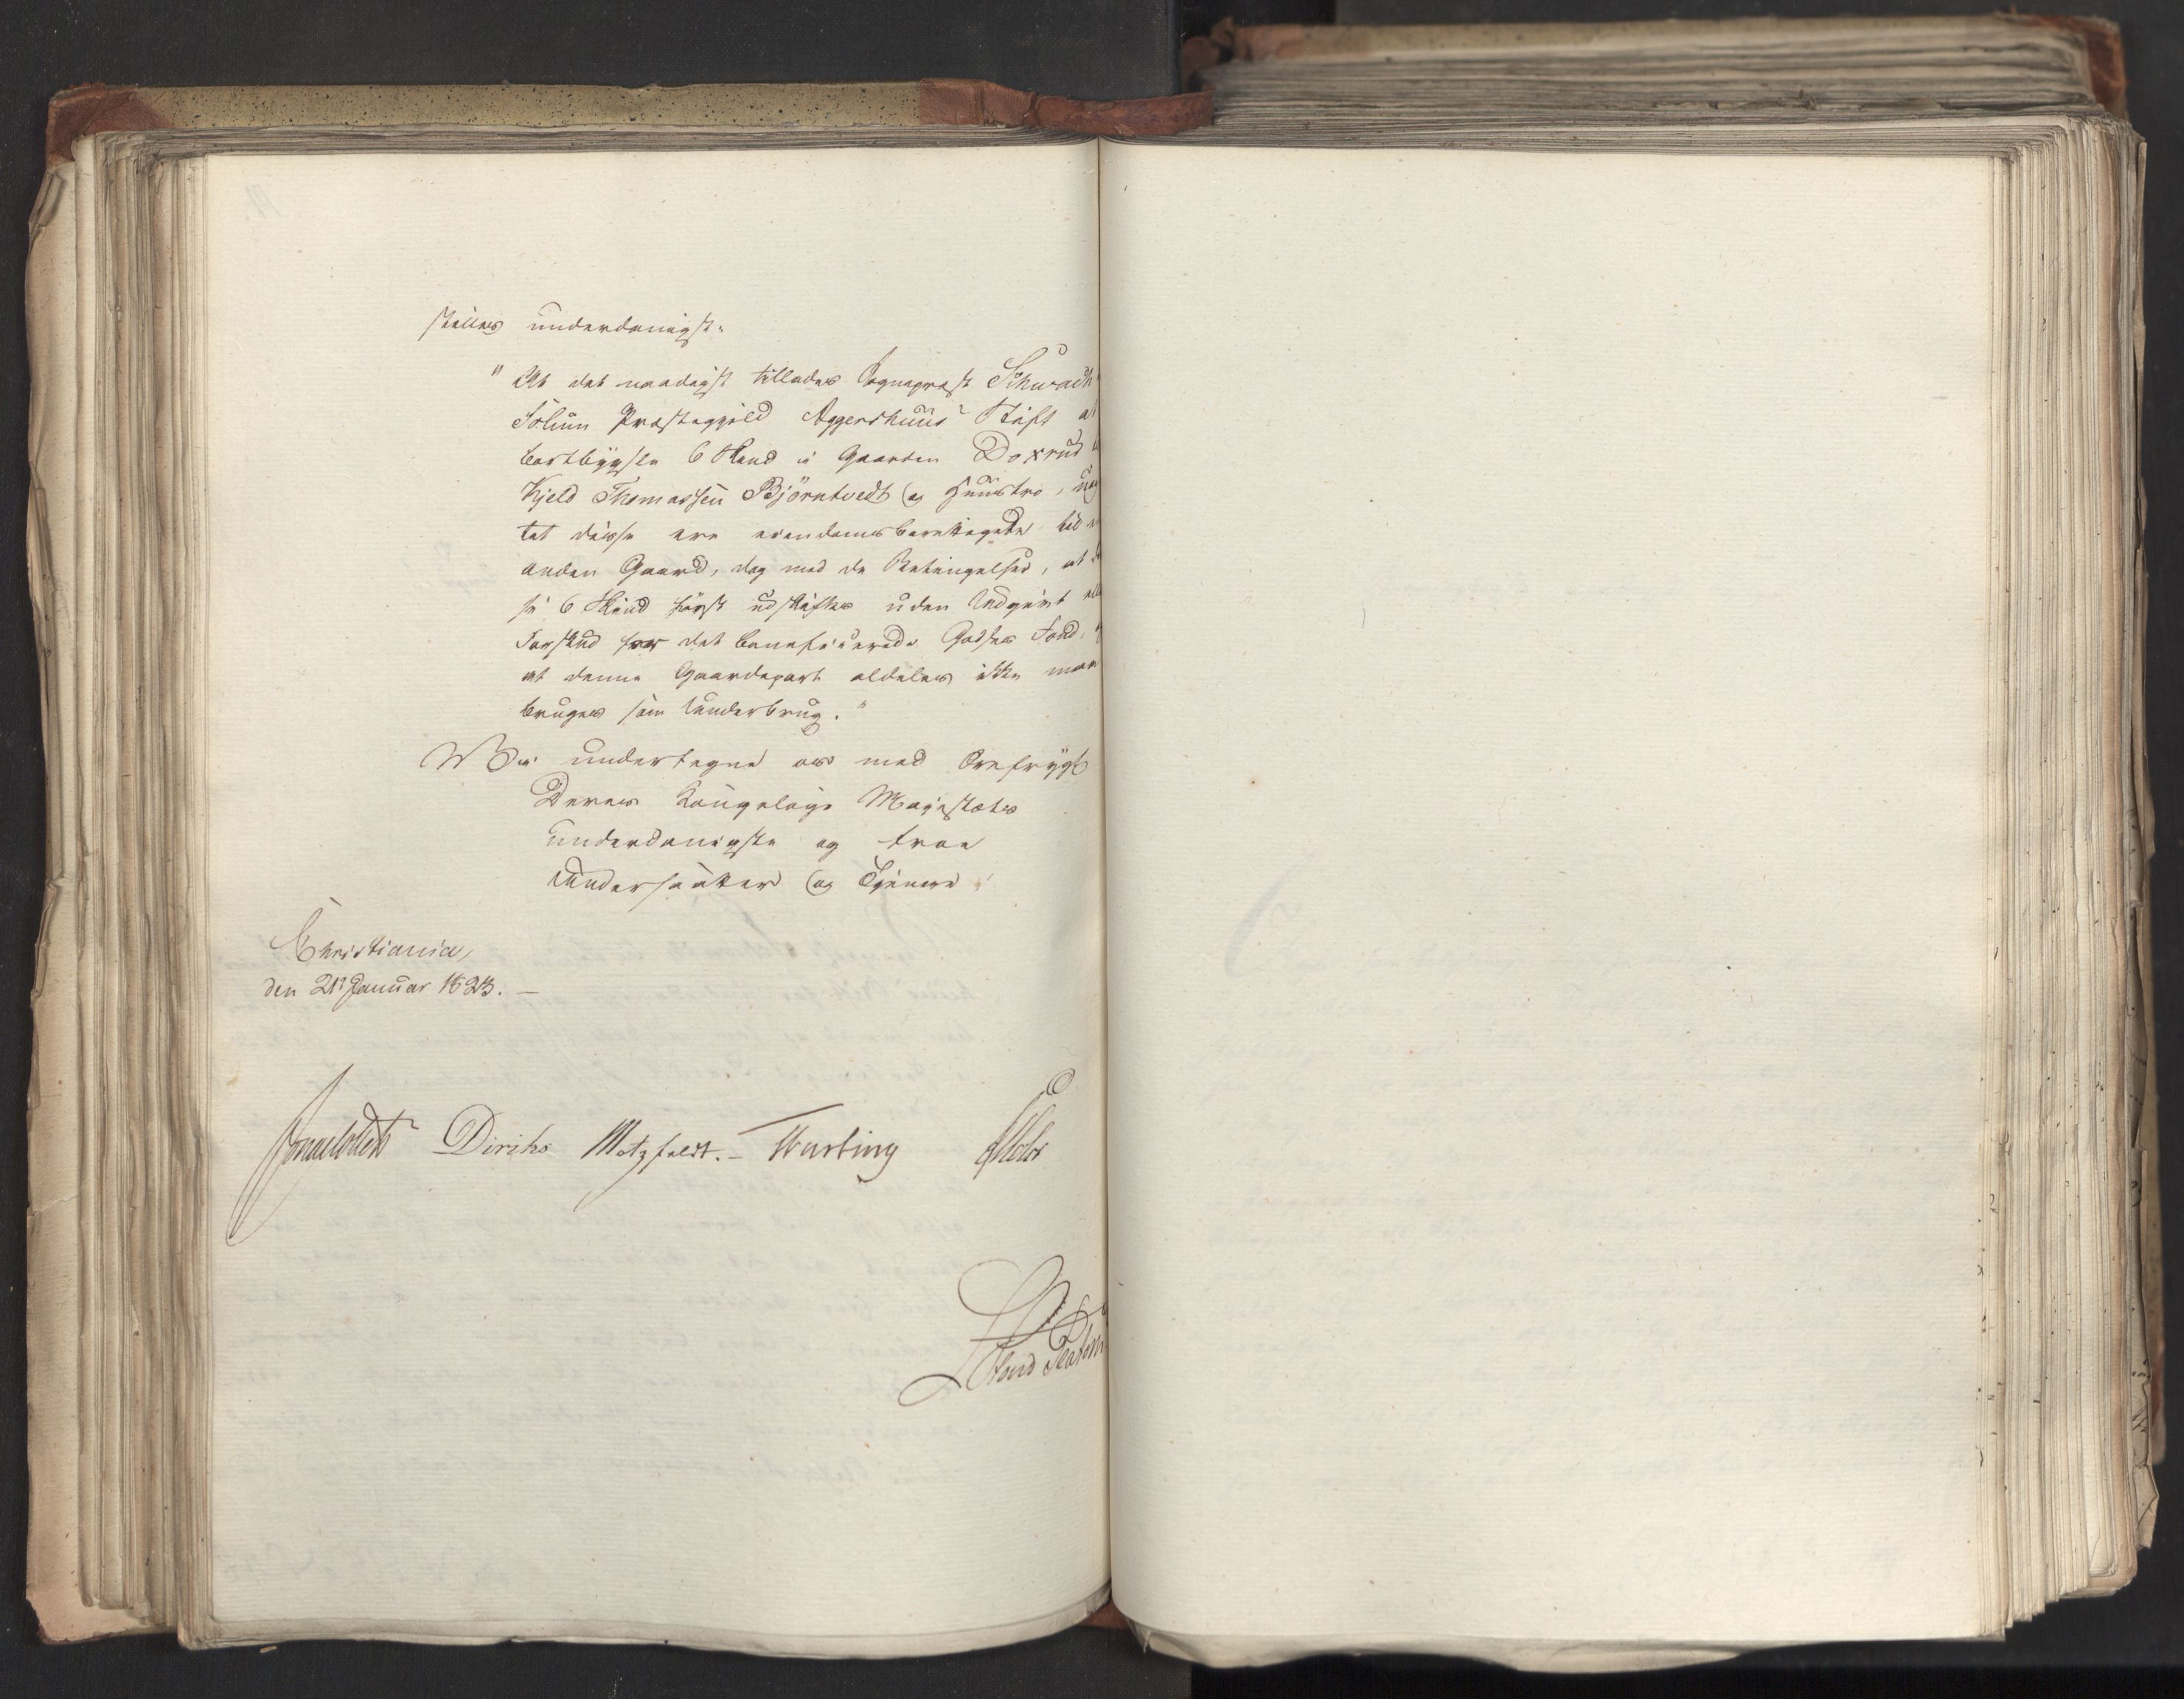 stilles underdanigst:
"At det naadigst tillades Sognepræst Schwach
Solum Præstegjeld Aggershuus Stift at
bortbygsle 6 Skind i Gaarden Doxrud
Kjeld Thomassen Björntvedt og Hustro,
tet disse ere eiendomsberettigede til
anden Gaard, dog med de Betingelser, at
se 6 Skind först udskiftes uden Udgivt
Forskud for det beneficerede Godses Fond,
at denne Gaardepart aldeles ikke maa
bruges som Underbrug."
Vi undertegne os med Ærefrygt
Deres Kongelige Majestæts
underdanigste og troe
Undersaatter og Tjenere
Christiania,
den 21de Januar 1823. —
Sommerhielm Diriks Motzfeldt. — Krog